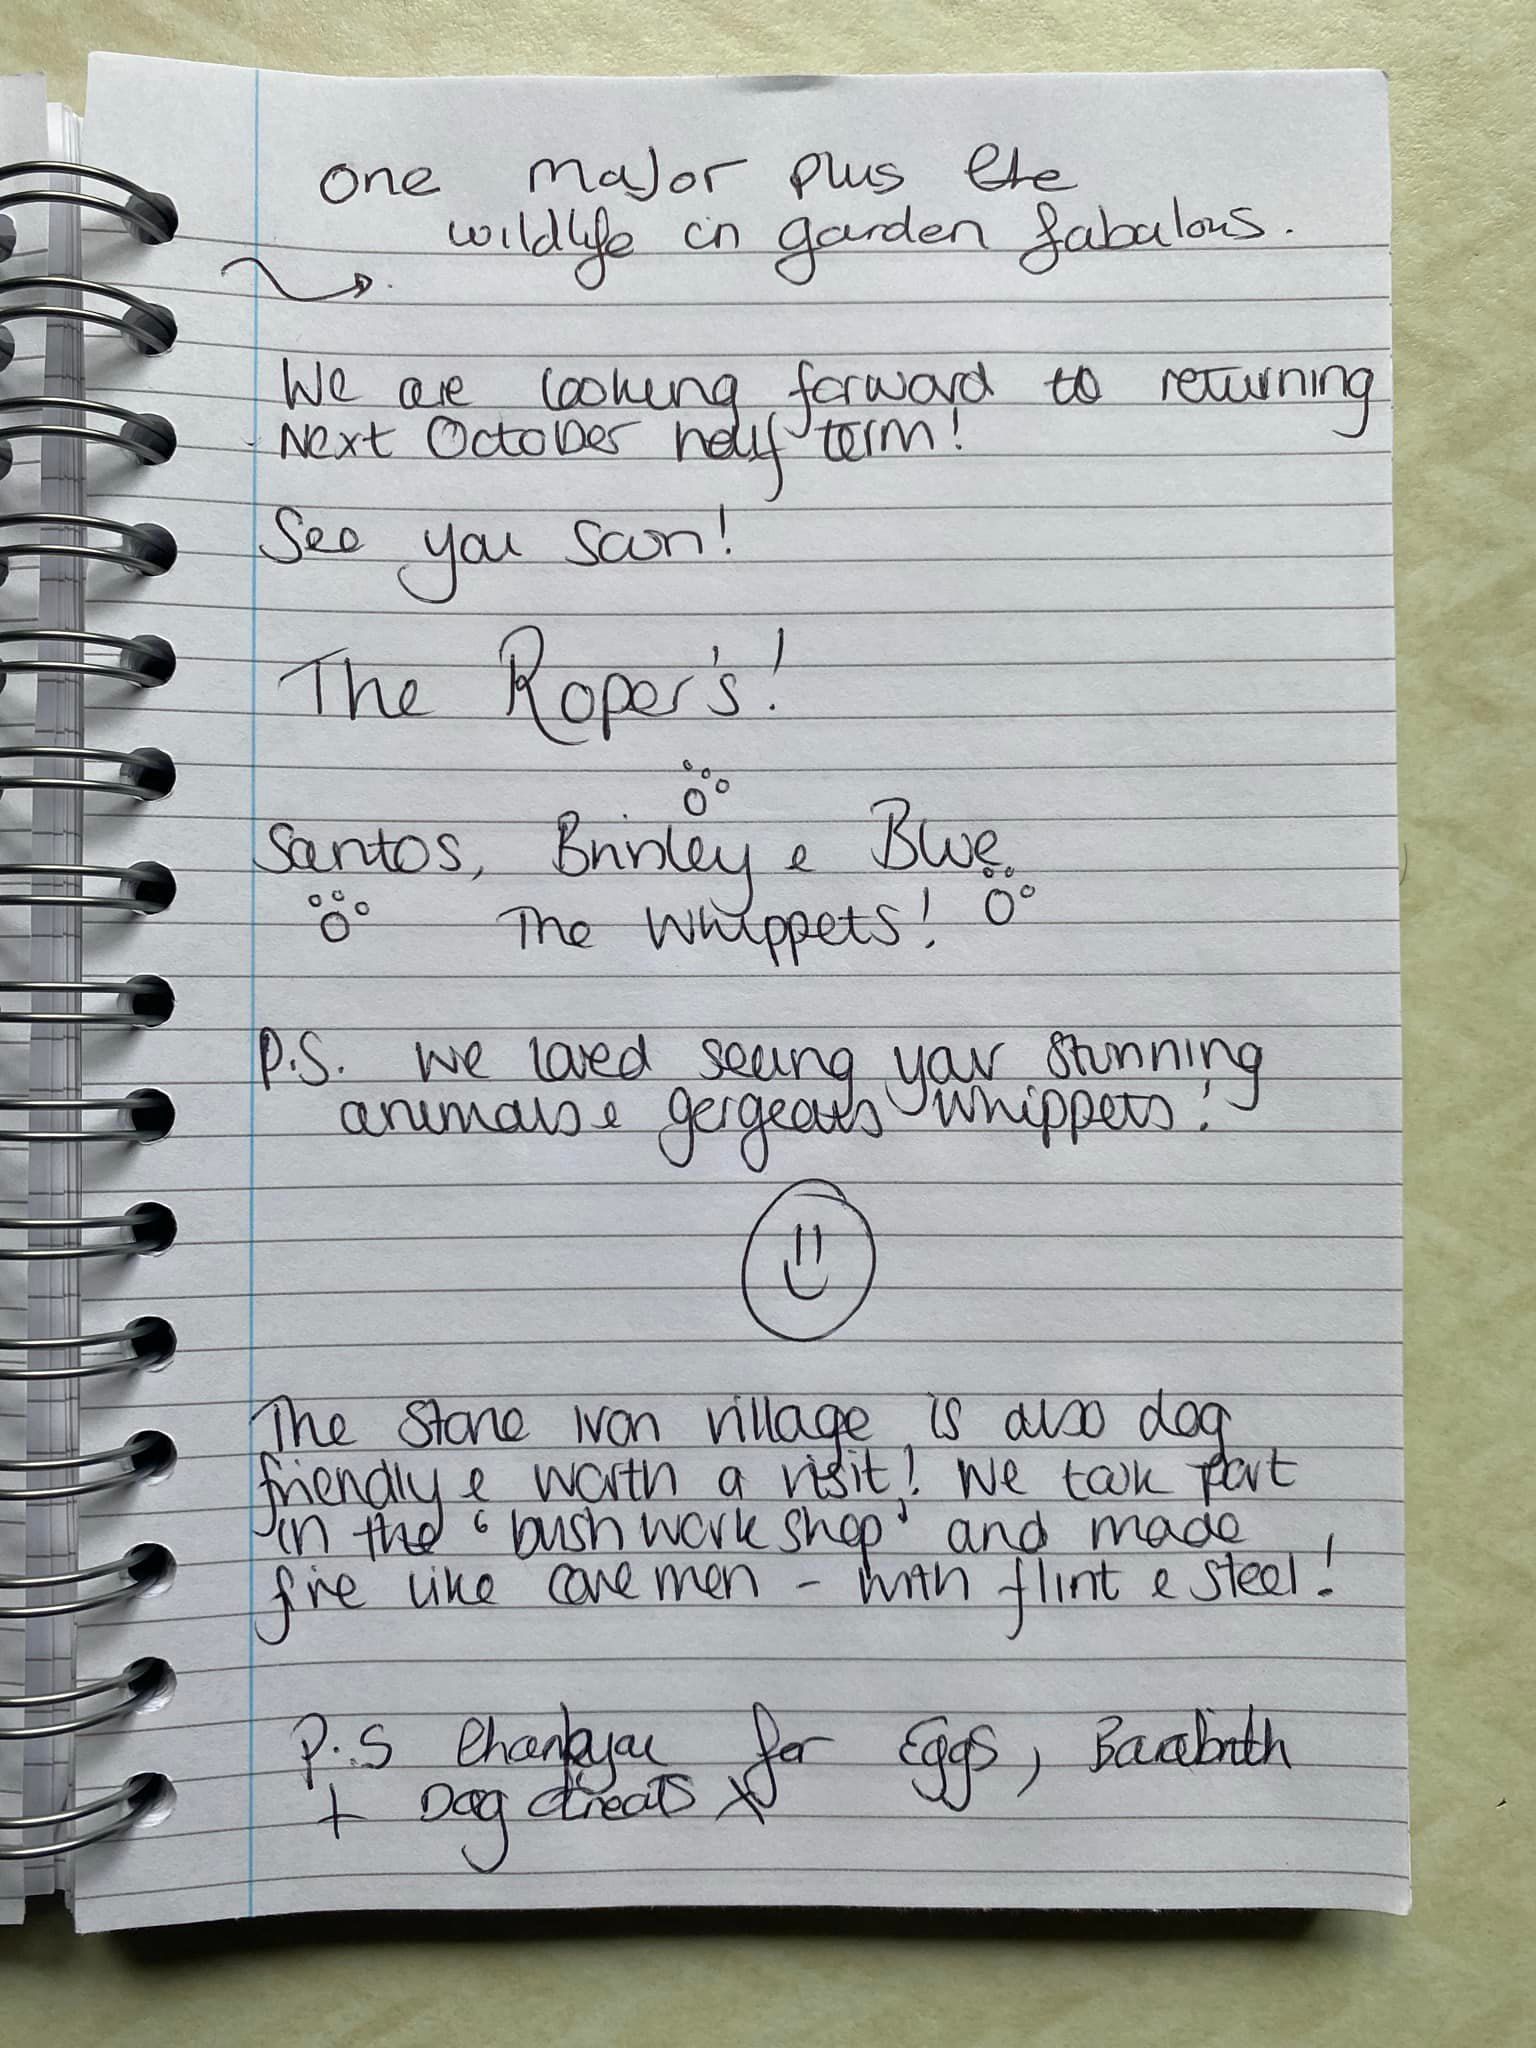 One major plus the
wildlife in garden fabalous.
We are looking forward to returning
Next October half term!
See you soon!
The Roper's!
Santos, Brinley & Blue
The Whippets!
P.S. We loved seeing your stunning
animals & gergeous whippets!
The Stone Iron village is also dog
friendly & worth a visit! We took part
in the 'bush work shop' and made
fire like cavemen - with flint & steel!
P.S thankyou for Eggs, Barabrith
+ Dog treats x